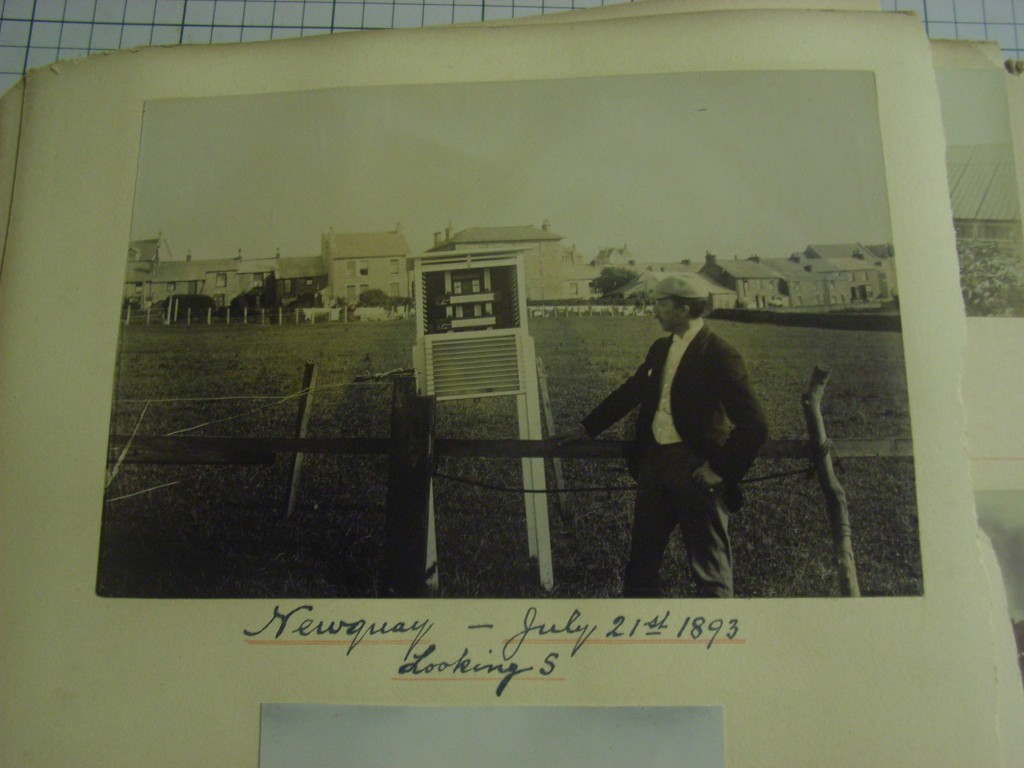 Newquay - July 21st 1893
Looking S